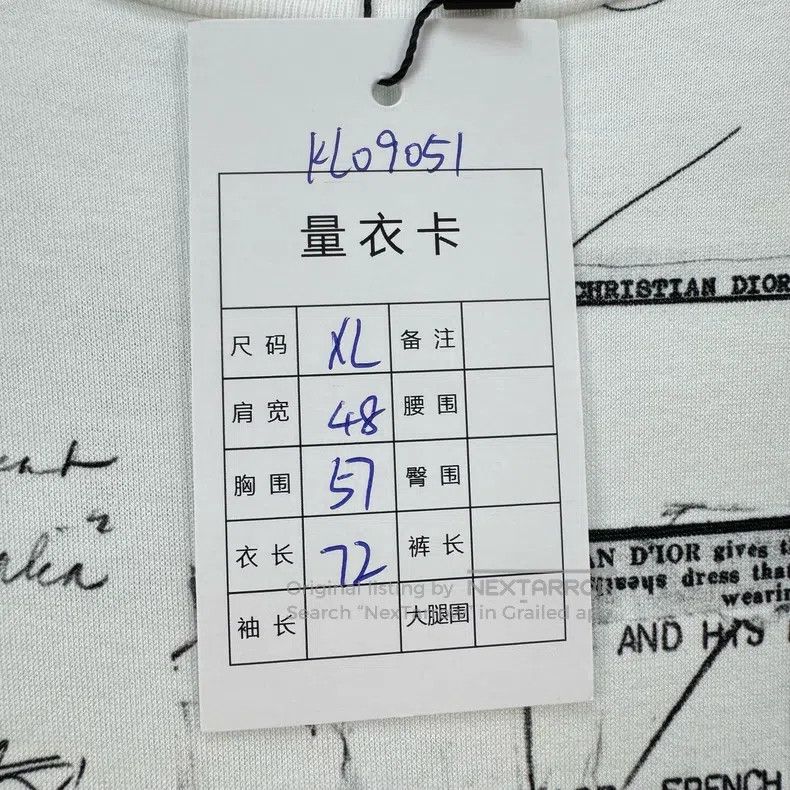 KL09051
量衣卡
尺码 XL 备注
肩宽 48 腰围
胸围 57 臀围
衣长 72 裤长
袖长 大腿围
Original listing by NEXTARRO
Search "NexTa in Grailed ap
CHRISTIAN DIOR
N D'IOR gives
dress that
wearin
AND HIS
FRENCH